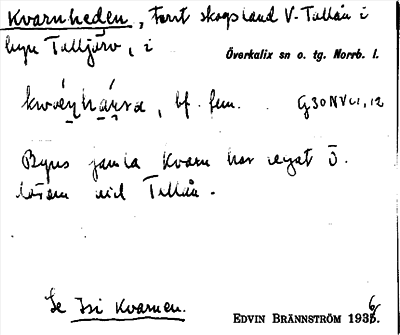 Kvarnheden, torrt skogsland V. Tallån i
byn Talljärv, i
Överkalix sn o. tg. Norrb. l.
bf. fem. G30NV c1,12
Byns gamla Kvarn har legat Ö.
därom vid Tallån.
Se Isi Kvarnen.
EDVIN BRÄNNSTRÖM 1936.